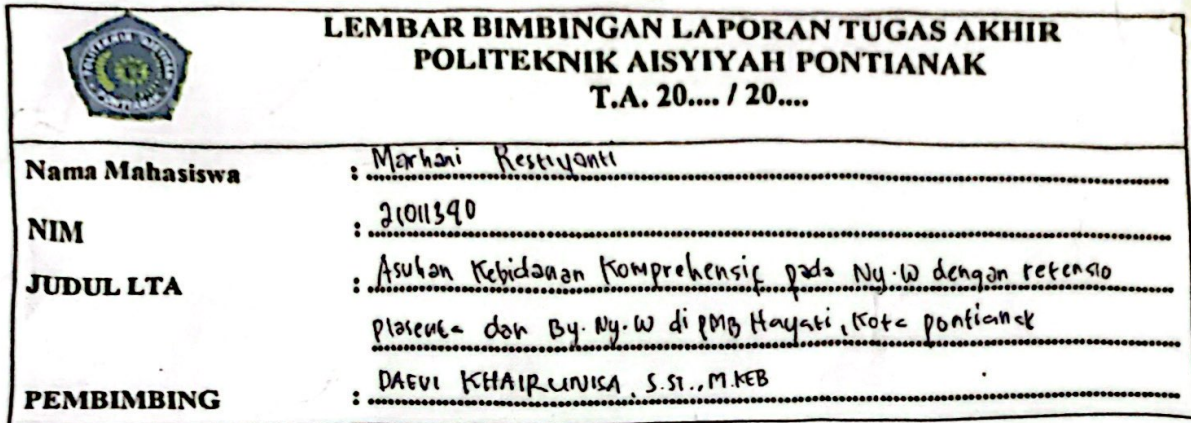 LEMBAR BIMBINGAN LAPORAN TUGAS AKHIR
POLITEKNIK AISYIYAH PONTIANAK
T.A. 20.... / 20....
Nama Mahasiswa : Marhani Restiyanti
NIM : 21011390
JUDUL LTA : Asuhan Kebidanan Komprehensif pada Ny.W dengan retensio
plasenta dan By. Ny. W di PMB Hayati, Kota pontianak
PEMBIMBING : KHAIRUNISA, S.ST., M.KEB